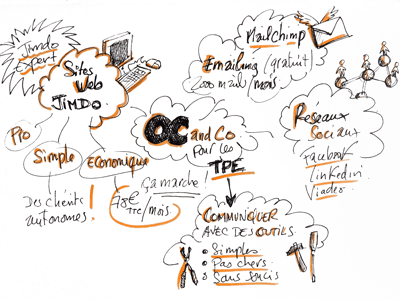 Jimdo
Expert
Sites
Web
JIMDO
Pro
Simple
Economique
Des clients
autonomes !
ça marche !
TTC/mois
OC and Co
Pour les
TPE
MailChimp
Emailing (gratuit)
2000 mails/mois
Réseaux
Sociaux
Facebook
Linkedin
Viadeo
COMMUNIQUER
AVEC DES OUTILS
Simples
Pas chers
Sans soucis